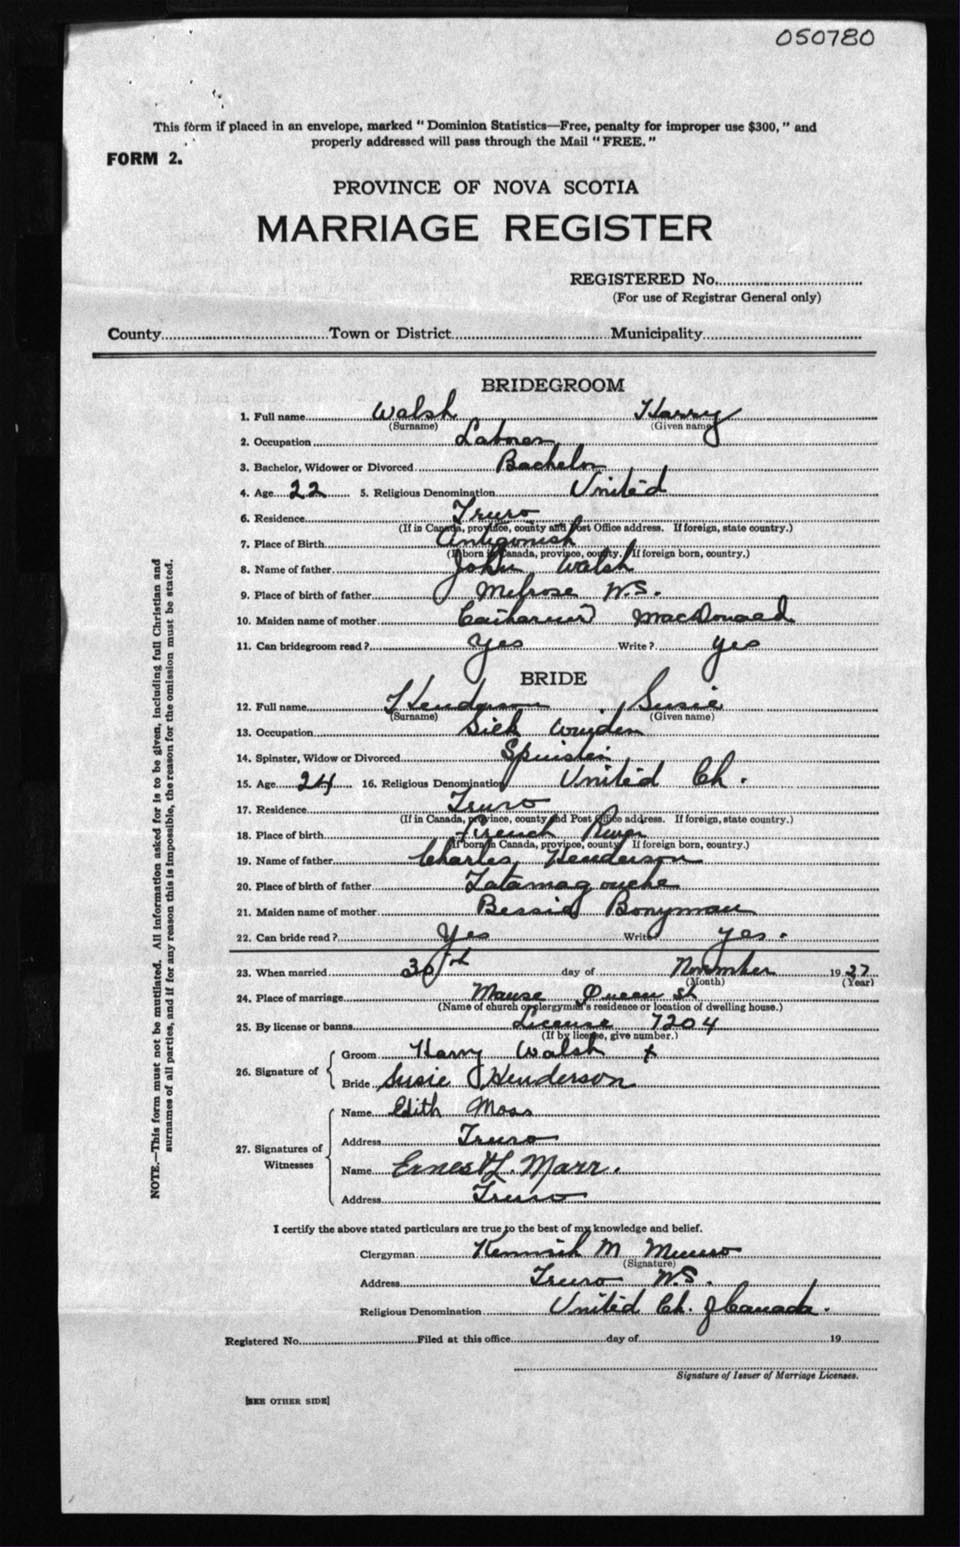 050780
This form if placed in an envelope, marked "Dominion Statistics—Free, penalty for improper use $300," and
properly addressed will pass through the Mail "FREE."
FORM 2.
PROVINCE OF NOVA SCOTIA
MARRIAGE REGISTER
REGISTERED No.
(For use of Registrar General only)
County Town or District Municipality
BRIDEGROOM
1. Full name Walsh Harry
(Surname) (Given name)
2. Occupation Laborer
3. Bachelor, Widower or Divorced Bachelor
4. Age 22 5. Religious Denomination United
6. Residence Truro
(If in Canada, province, county and Post Office address. If foreign, state country.)
7. Place of Birth Antigonish
(If born in Canada, province, county. If foreign born, country.)
8. Name of father John Walsh
9. Place of birth of father Melrose N.S.
10. Maiden name of mother Catharine MacDonald
11. Can bridegroom read? Yes Write? yes
BRIDE
12. Full name Henderson Susie
(Surname) (Given name)
13. Occupation Silk
14. Spinster, Widow or Divorced Spinster
15. Age 24 16. Religious Denomination United Ch.
17. Residence Truro
(If in Canada, province, county and Post Office address. If foreign, state country.)
18. Place of birth French River
(If born in Canada, province, county. If foreign born, country.)
19. Name of father Charles Henderson
20. Place of birth of father Tatamagouche
21. Maiden name of mother Bessie Bonyman
22. Can bride read? Yes Write yes.
23. When married 30th day of November 1927
(Month) (Year)
24. Place of marriage Manse Queen St
(Name of church or clergyman's residence or location of dwelling house.)
25. By license or banns License 7204
(If by license, give number.)
26. Signature of
Groom Harry Walsh x
Bride Susie J Henderson
27. Signatures of Witnesses
Name Edith Moss
Address Truro
Name Ernest L. Marr.
Address Truro
I certify the above stated particulars are true to the best of my knowledge and belief.
Clergyman Kenneth M Munro
(Signature)
Address Truro N.S.
Religious Denomination United Ch. of Canada.
Registered No. Filed at this office day of 19
Signature of Issuer of Marriage Licenses.
[SEE OTHER SIDE]
NOTE.—This form must not be mutilated. All information asked for is to be given, including full Christian and
surnames of all parties, and if for any reason this is impossible, the reason for the omission must be stated.